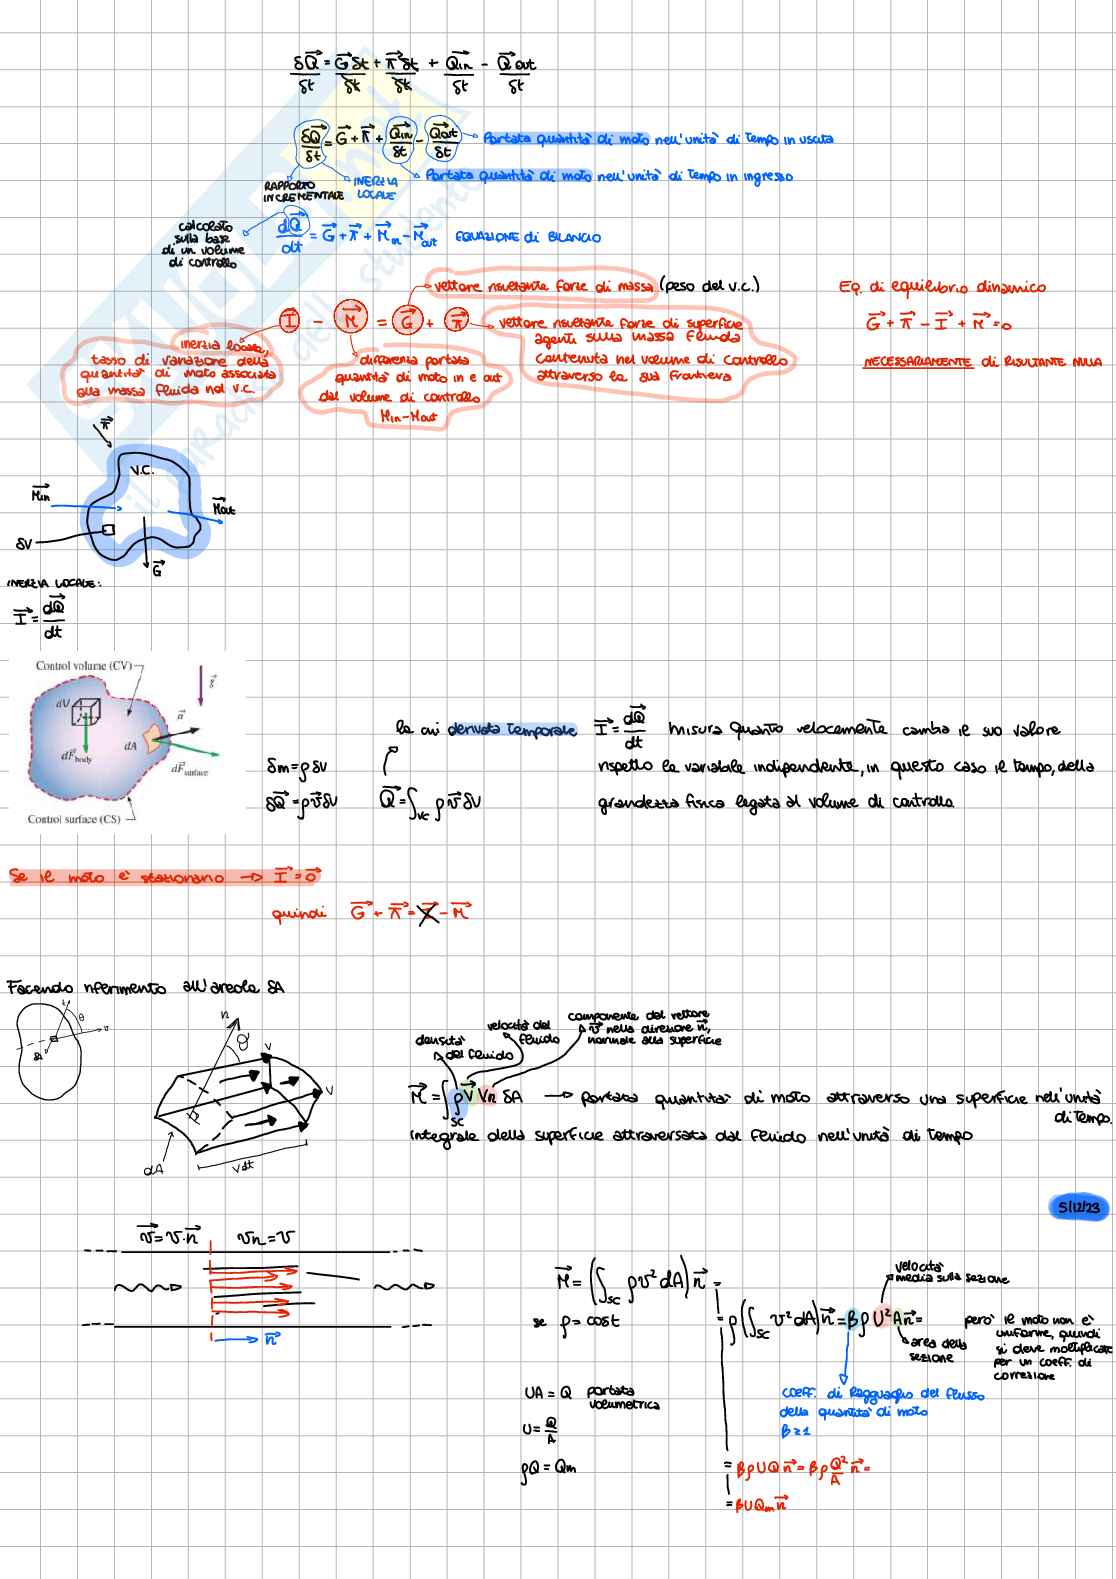 δQ⃗ = G⃗δt + π⃗δt + Q⃗in − Q⃗out
δt δt δt δt δt
δQ⃗/δt = G⃗ + π⃗ + Q⃗in/δt − Q⃗out/δt → Portata quantità di moto nell'unità di tempo in uscita
Portata quantità di moto nell'unità di tempo in ingresso
RAPPORTO INCREMENTALE
INERZIA LOCALE
calcolato
sulla base
di un volume
di controllo
dQ⃗/dt = G⃗ + π⃗ + M⃗in − M⃗out EQUAZIONE di BILANCIO
vettore risultante forze di massa (peso del v.c.)
Eq. di equilibrio dinamico
I⃗ − M⃗ = G⃗ + π⃗
G⃗ + π⃗ − I⃗ + M⃗ = 0
NECESSARIAMENTE di RISULTANTE NULLA
inerzia locale,
tasso di variazione della
quantità di moto associata
alla massa fluida nel V.C.
differenza portata
quantità di moto in e out
dal volume di controllo
Min-Mout
vettore risultante forze di superficie
agenti sulla massa fluida
contenuta nel volume di controllo
attraverso la sua frontiera
π⃗
V.C.
M⃗in
M⃗out
δV
G⃗
INERZIA LOCALE:
I⃗ = dQ⃗/dt
Control volume (CV)
dV
g⃗
n⃗
dA
dF⃗body
dF⃗surface
Control surface (CS)
la cui derivata temporale I⃗ = dQ⃗/dt misura quanto velocemente cambia il suo valore
rispetto la variabile indipendente, in questo caso il tempo, della
grandezza fisica legata al volume di controllo.
δm = ρδV
δQ⃗ = ρv⃗δV Q⃗ = ∫vc ρv⃗δV
Se il moto è stazionario → I⃗ = 0⃗
quindi G⃗ + π⃗ = I⃗ − M⃗
Facendo riferimento all'areola δA
θ
n
v
v
dA
vdt
densità
del fluido
velocità del
fluido
componente del vettore
v⃗ nella direzione n⃗,
normale alla superficie
M⃗ = ∫SC ρ v⃗ vn δA → portata quantità di moto attraverso una superficie nell'unità
di tempo.
integrale della superficie attraversata dal fluido nell'unità di tempo
5/12/23
v⃗ = v·n⃗ vn = v
n⃗
M⃗ = (∫SC ρv²dA)n⃗ =
se ρ = cost
= ρ(∫SC v²dA)n⃗ = βρU²An⃗ =
velocità
media sulla sezione
area della
sezione
però il moto non è
uniforme, quindi
si deve moltiplicare
per un coeff. di
correzione
coeff. di Ragguaglio del flusso
della quantità di moto
β≥1
UA = Q portata
volumetrica
U = Q/A
ρQ = Qm
= βρUQn⃗ = βρ Q²/A n⃗ =
= βUQmn⃗